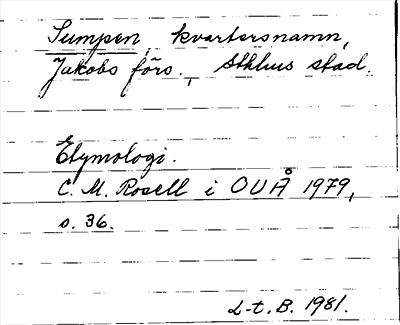 Sumpen, kvartersnamn,
Jakobs förs., Sthlms stad.
Etymologi.
C. M. Rosell i OUÅ 1979,
s. 36.
L-t. B. 1981.